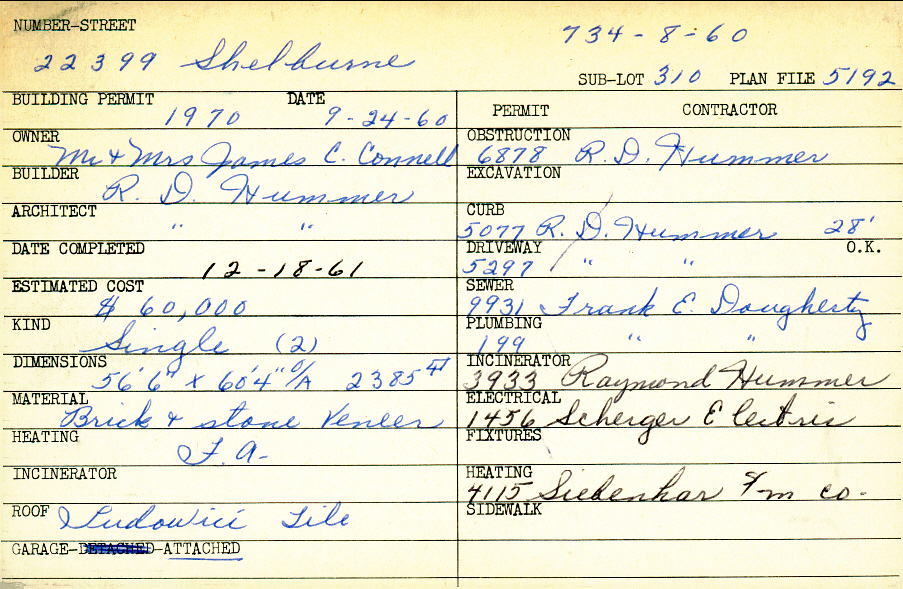 NUMBER-STREET
734-8-60
22399 Shelburne
SUB-LOT 310 PLAN FILE 5192
BUILDING PERMIT DATE
1970 9-24-60
PERMIT CONTRACTOR
OWNER
Mr & Mrs James C. Connell
OBSTRUCTION
6878 R. D. Hummer
BUILDER
R. D. Hummer
EXCAVATION
ARCHITECT
" "
CURB
5077 R. D. Hummer 28'
DATE COMPLETED
12-18-61
DRIVEWAY O.K.
5297 " "
ESTIMATED COST
$ 60,000
SEWER
9931 Frank E. Dougherty
KIND
Single (2)
PLUMBING
199 " "
DIMENSIONS
56'6" x 60'4" O/A 2385
INCINERATOR
3933 Raymond Hummer
MATERIAL
Brick & stone Veneer
ELECTRICAL
1456 Scherger Electric
HEATING
F.A.
FIXTURES
INCINERATOR
HEATING
4115 Siebenhar co.
ROOF
Ludowici Tile
SIDEWALK
GARAGE-DETACHED-ATTACHED